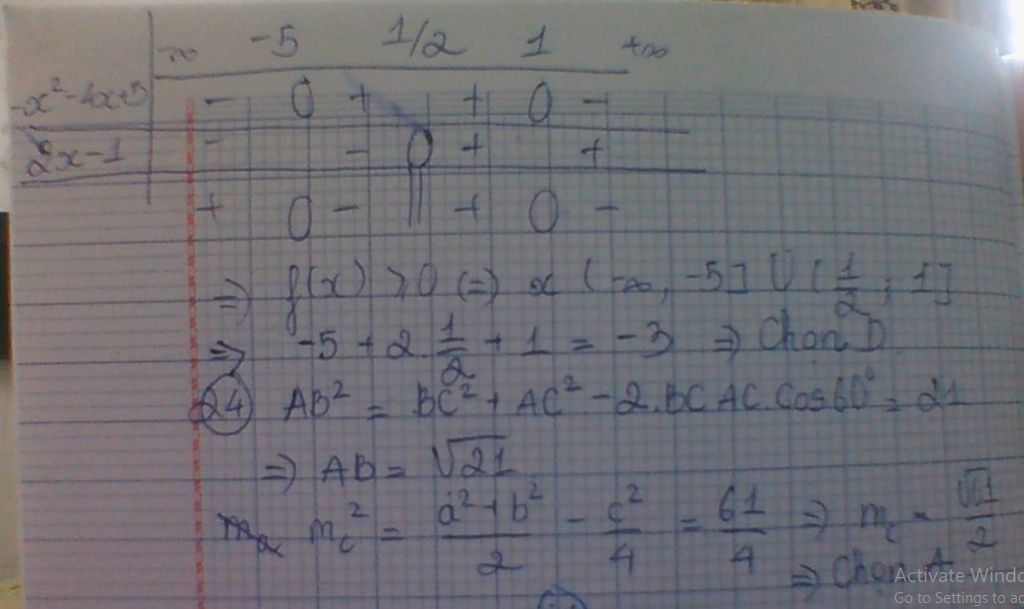 -∞ -5 1/2 1 +∞
-x²-4x+5 - 0 + + 0 -
2x-1 - - 0 + +
+ 0 - || + 0 -
=> f(x) ≥ 0 (=) x (-∞, -5] U (1/2; 1]
=> -5 + 2.1/2 + 1 = -3 => Chọn D
24 AB² = BC² + AC² - 2.BC.AC.Cos60° = 21
=> AB = √21
m_c² = (a²+b²)/2 - c²/4 = 61/4 => m_c = √61/2
=> Chọn A
Activate Windo
Go to Settings to ac